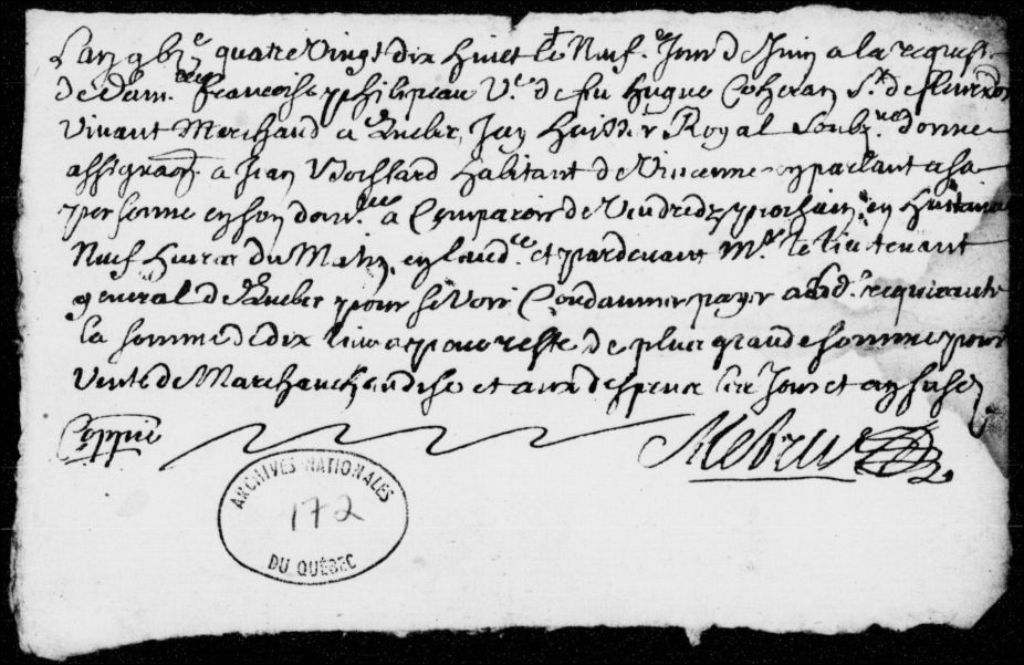 Lan gbje quatre Vingt dix huict le Neufe Jour de Juin a la requeste
de dam.lle francoise philipeau Ve de fu hugue Coheran Sr de
Vivant Marchand a Quebec, Jay huissier Royal Soubz.ne donne
assignaon a Jean Boissard habitant de Vincenne en parlant a sa
personne en son dom.lle a Comparoir de Vendredy prochain en huictaine
Neuf heures du Matin en laud.ce et pardevant Mr le lieutenant
general de Quebec pour se Voir Condamner payer a lad. requerante
la somme de dix livres pour reste de plus grande somme pour
Vente de Marchandise et aux despens les Jour et an susd
Coppie
ARCHIVES NATIONALES
172
DU QUÉBEC